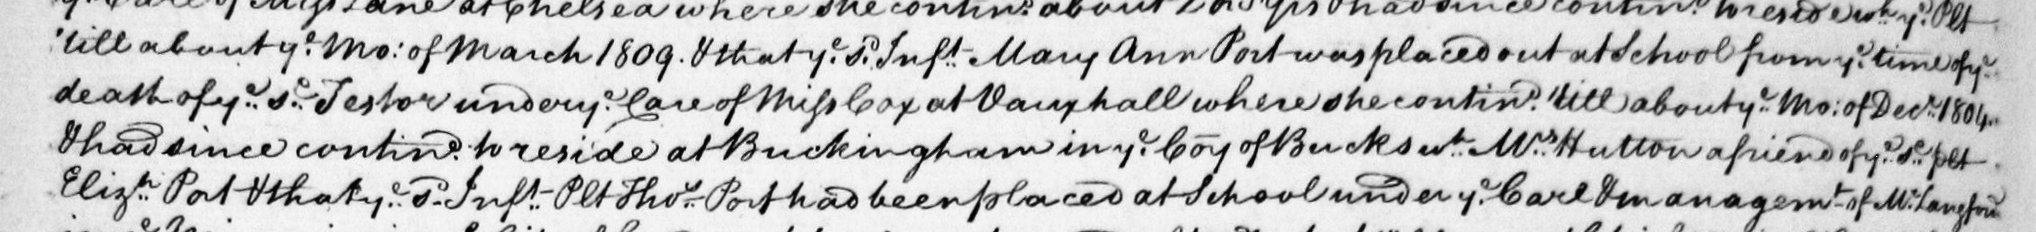 at Chelsea where she contin.d about 2 or 3 yrs & had since contin.d to reside wth ye Plt
'till about ye Mo: of March 1809. & that ye sd Inft Mary Ann Port was placed out at School from ye time of ye
death of ye sd Testor under ye Care of Miss Cox at Vauxhall where she contin.d 'till about ye Mo: of Decr 1804
& had since contin.d to reside at Buckingham in ye Coy of Bucks wth Mrs Hutton a friend of ye sd plt
Elizth Port & that ye sd Inft Plt Thos Port had been placed at School under ye Care & managemt of Mr Langford